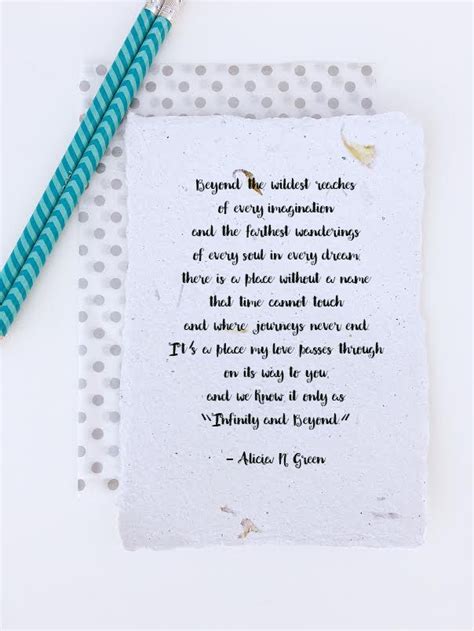 Beyond the wildest reaches
of every imagination
and the farthest wanderings
of every soul in every dream,
there is a place without a name
that time cannot touch
and where journeys never end.
It's a place my love passes through
on its way to you,
and we know it only as
"Infinity and Beyond."
- Alicia N Green